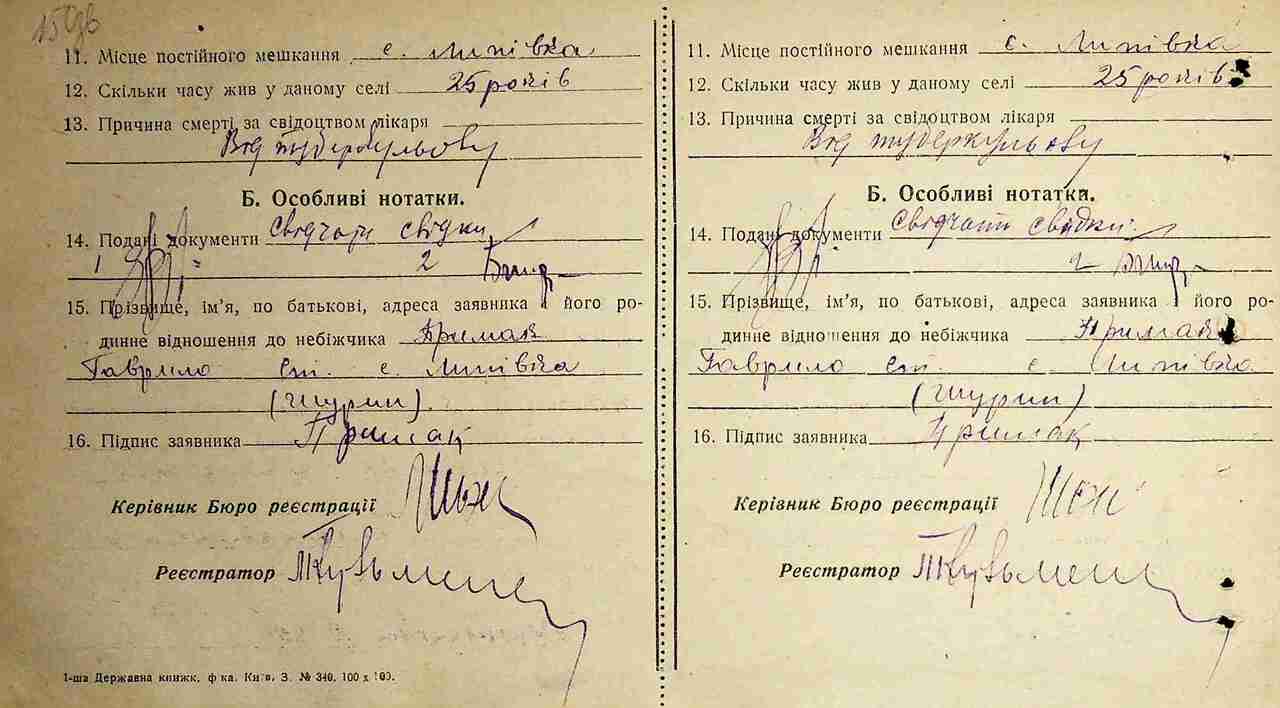 11. Місце постійного мешкання с. Липівка
12. Скільки часу жив у даному селі 25 років
13. Причина смерті за свідоцтвом лікаря
Від туберкульозу
Б. Особливі нотатки.
14. Подані документи Свідчать свідки
1 2
15. Прізвище, ім'я, по батькові, адреса заявника і його ро-
динне відношення до небіжчика Примак
Гаврило Ст. с. Липівка
(Шурин).
16. Підпис заявника Примак
Керівник Бюро реєстрації
Реєстратор
1-ша Державна книжк. ф-ка. Київ. З. № 340. 100 x 100.
11. Місце постійного мешкання с. Липівка
12. Скільки часу жив у даному селі 25 років
13. Причина смерті за свідоцтвом лікаря
Від туберкульозу
Б. Особливі нотатки.
14. Подані документи Свідчать свідки:
2
15. Прізвище, ім'я, по батькові, адреса заявника і його ро-
динне відношення до небіжчика Примак
Гаврило Ст. с Липівка
(Шурин)
16. Підпис заявника Примак
Керівник Бюро реєстрації
Реєстратор